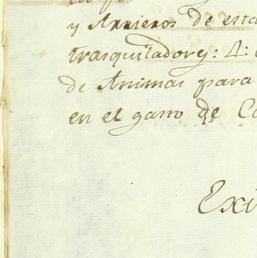 y Arrieros de esta
trasquiladores: A:
de Animas para
en el gasto de Co
Exi